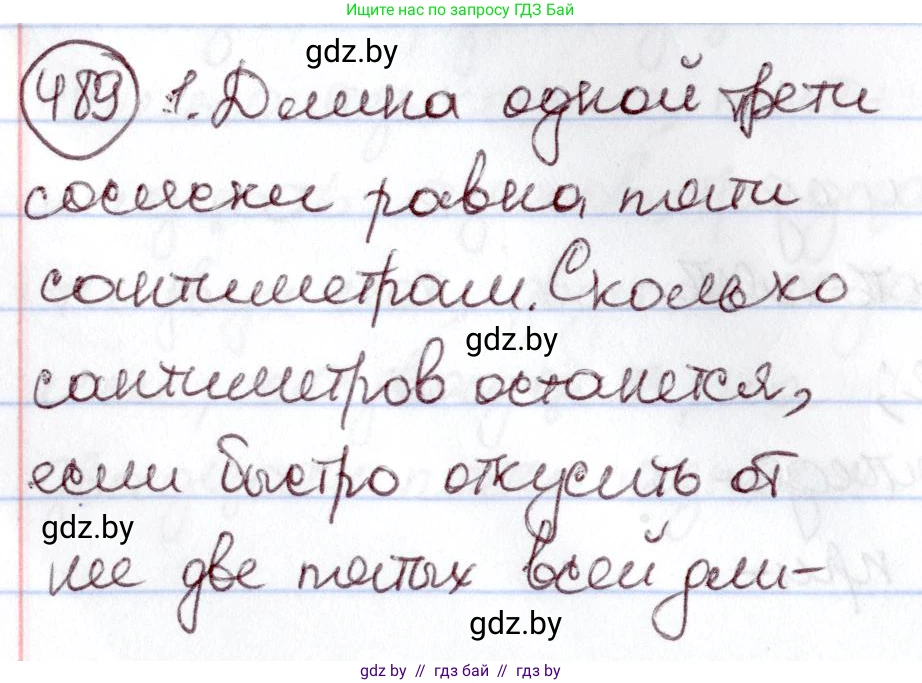 Ищите нас по запросу ГДЗ Бай
gdz.by
489 1. Длина одной трети
сосиски равна пяти
сантиметрам. Сколько
gdz.by
сантиметров останется,
если быстро откусить от
gdz.by
нее две пятых всей дли-
gdz.by
gdz by // гдз бай // гдз by